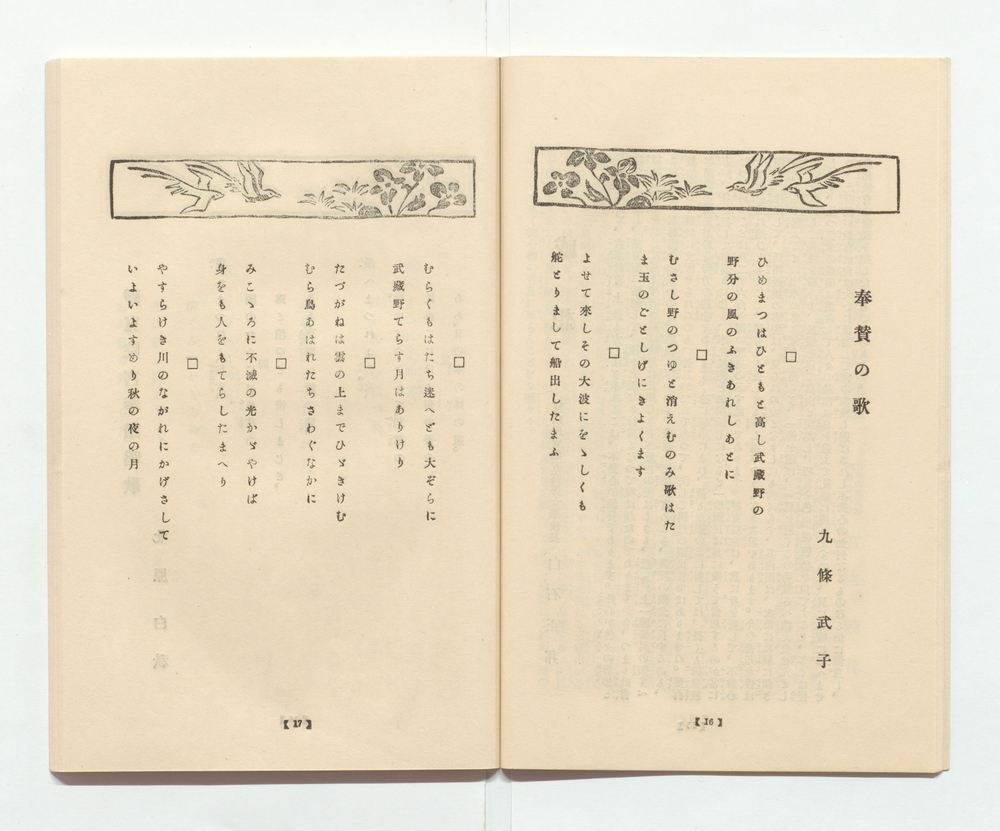 奉賛の歌
九條武子
ひめまつはひともと高し武藏野の
野分の風のふきあれしあとに
□
むさし野のつゆと消えむのみ歌はた
ま玉のごとしげにきよくます
□
よせて來しその大波にをゝしくも
舵とりまして船出したまふ
【16】
□
むらくもはたち迷へども大ぞらに
武藏野てらす月はありけり
□
たづがねは雲の上までひゞきけむ
むら鳥あはれたちさわぐなかに
□
みこゝろに不滅の光かゞやけば
身をも人をもてらしたまへり
□
やすらけき川のながれにかげさして
いよいよすめり秋の夜の月
【17】